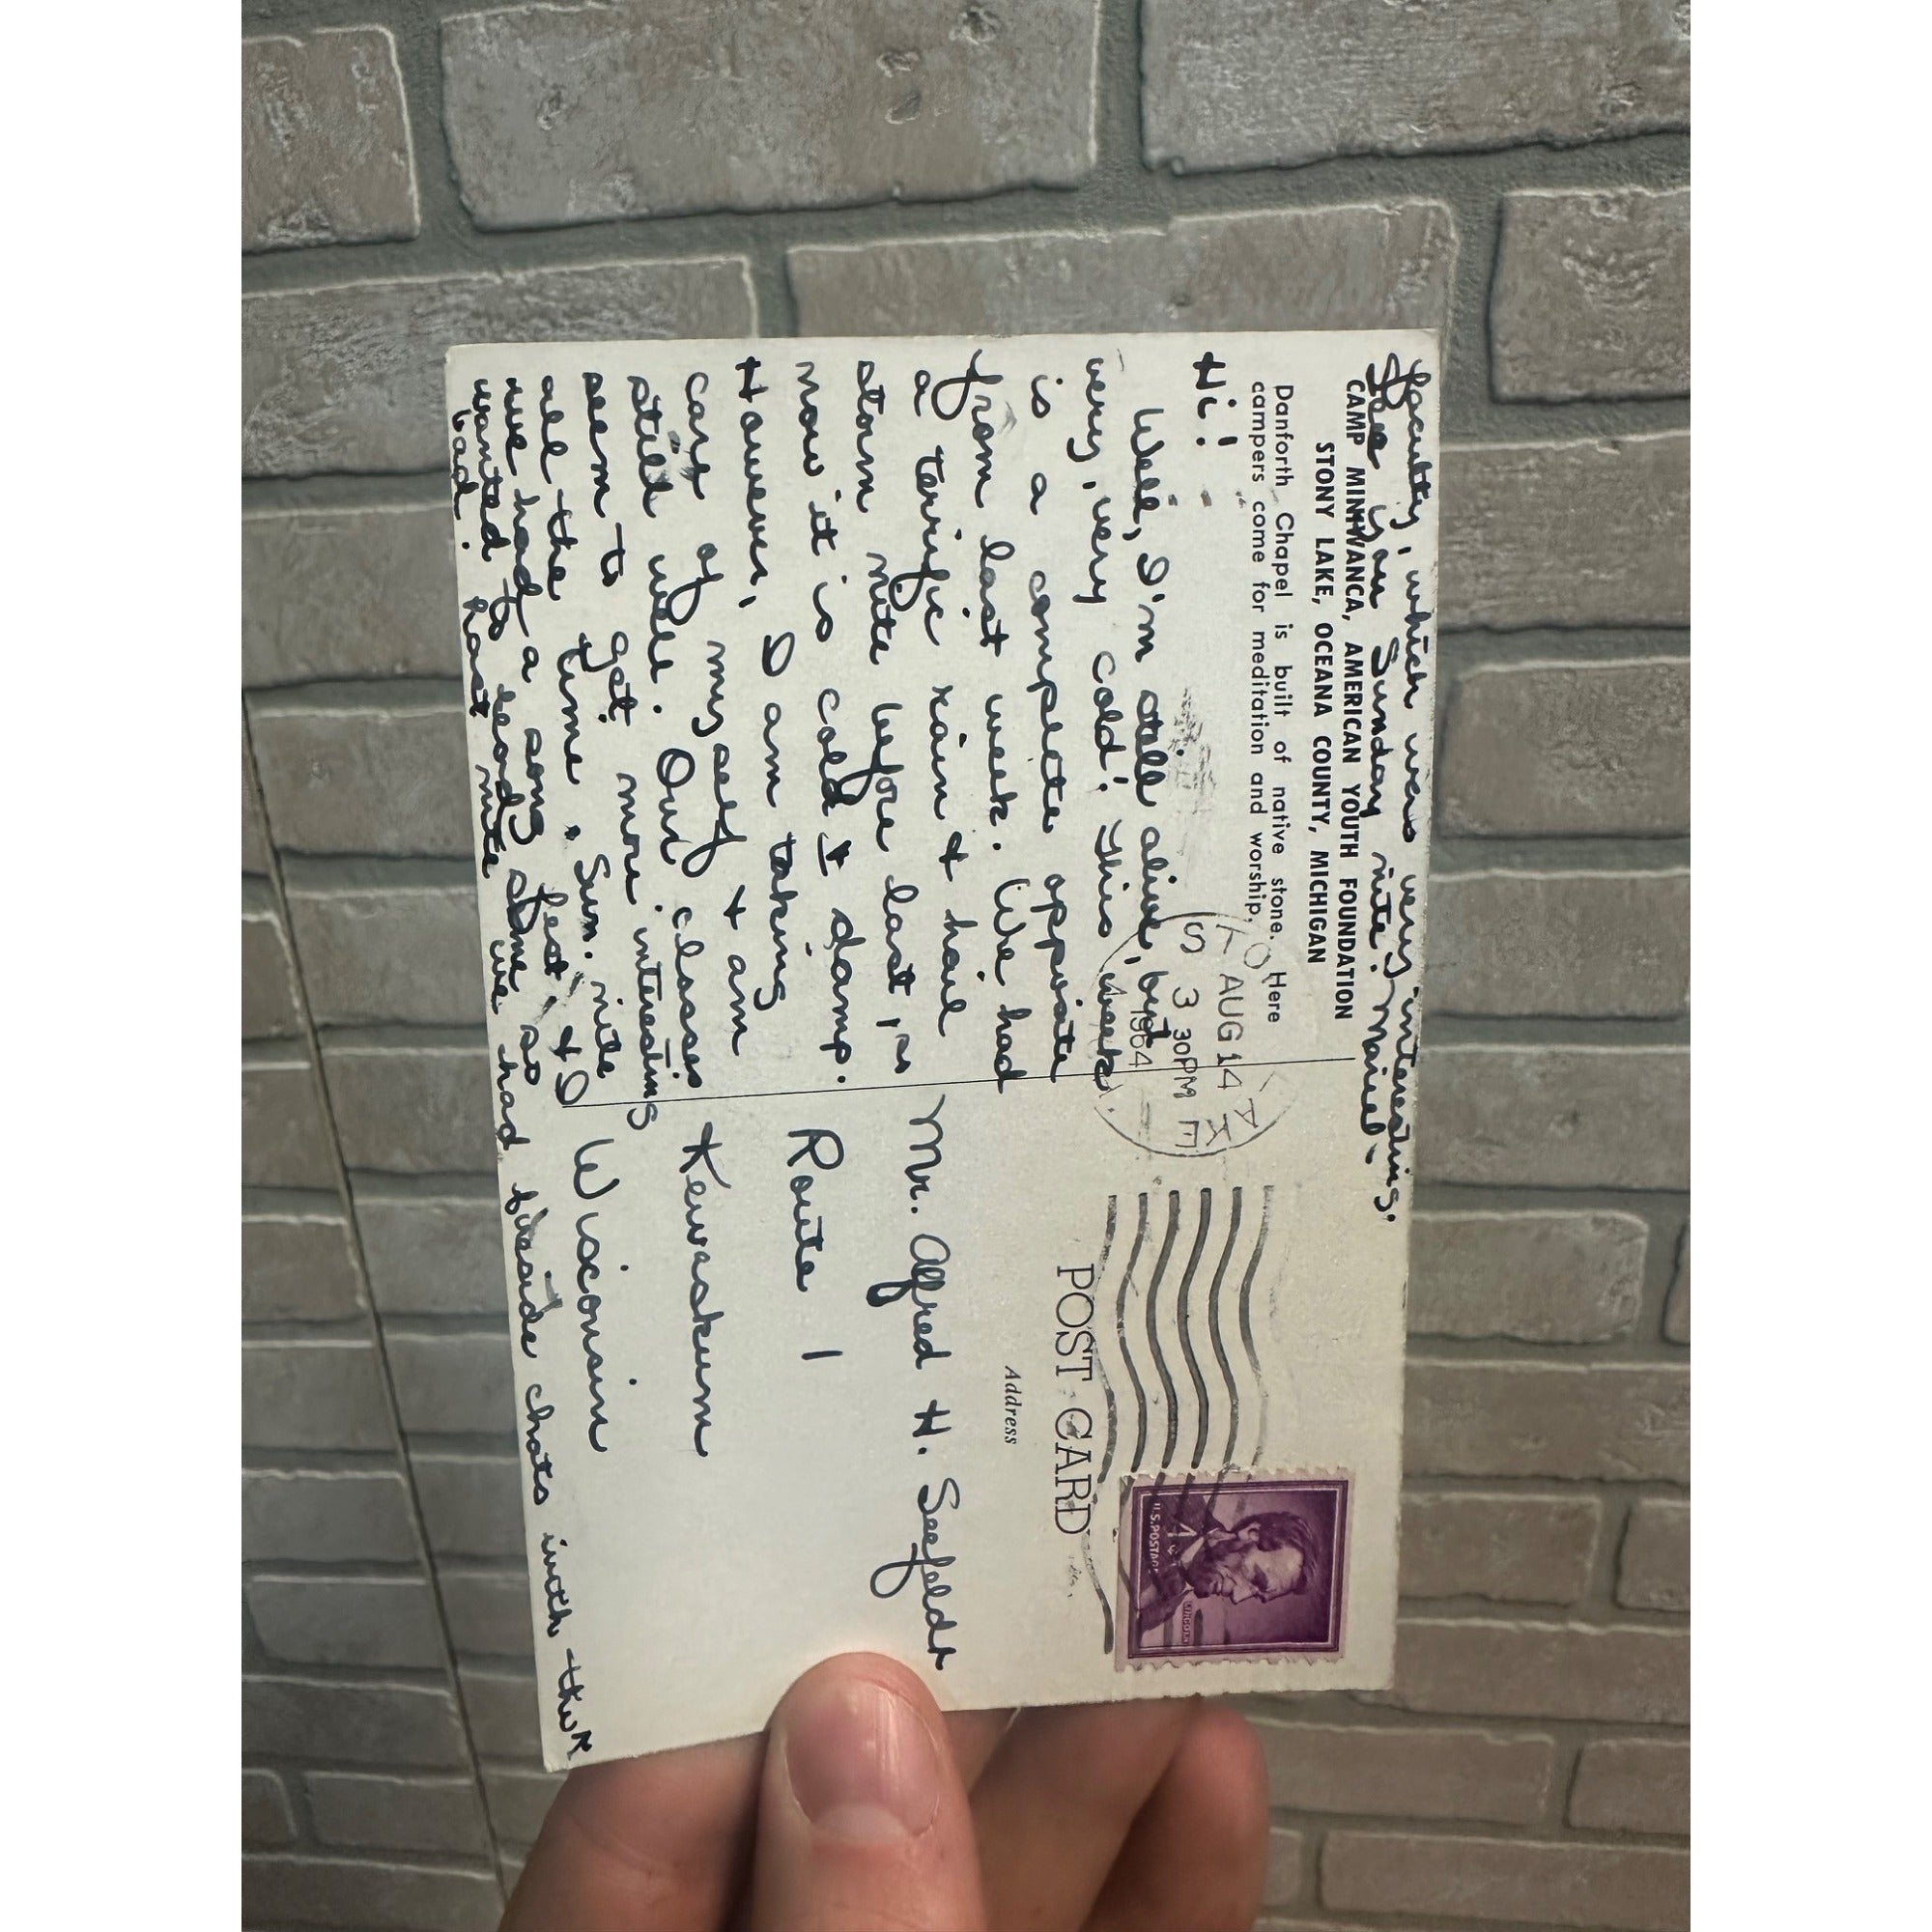 faculty, which was very interesting.
See you Sunday nite. Mariel-
CAMP MINIWANCA, AMERICAN YOUTH FOUNDATION
STONY LAKE, OCEANA COUNTY, MICHIGAN
Danforth Chapel is built of native stone. Here
campers come for meditation and worship.
Hi!
Well, I'm still alive, but
very, very cold! This week
is a complete opposite
from last week. We had
a terrific rain & hail
storm nite before last, so
now it is cold & damp.
However, I am taking
care of myself & am
still well. Our classes
seem to get more interesting
all the time. Sun. nite
we had a song fest, & I
wanted to lead some so
bad. Last nite we had fireside chats with the
AUG 14
3 30 PM
1964
POST CARD
Address
Mr. Alfred H. Seefeldt
Route 1
Kewaskum
Wisconsin
U.S. POSTAGE
4¢
LINCOLN